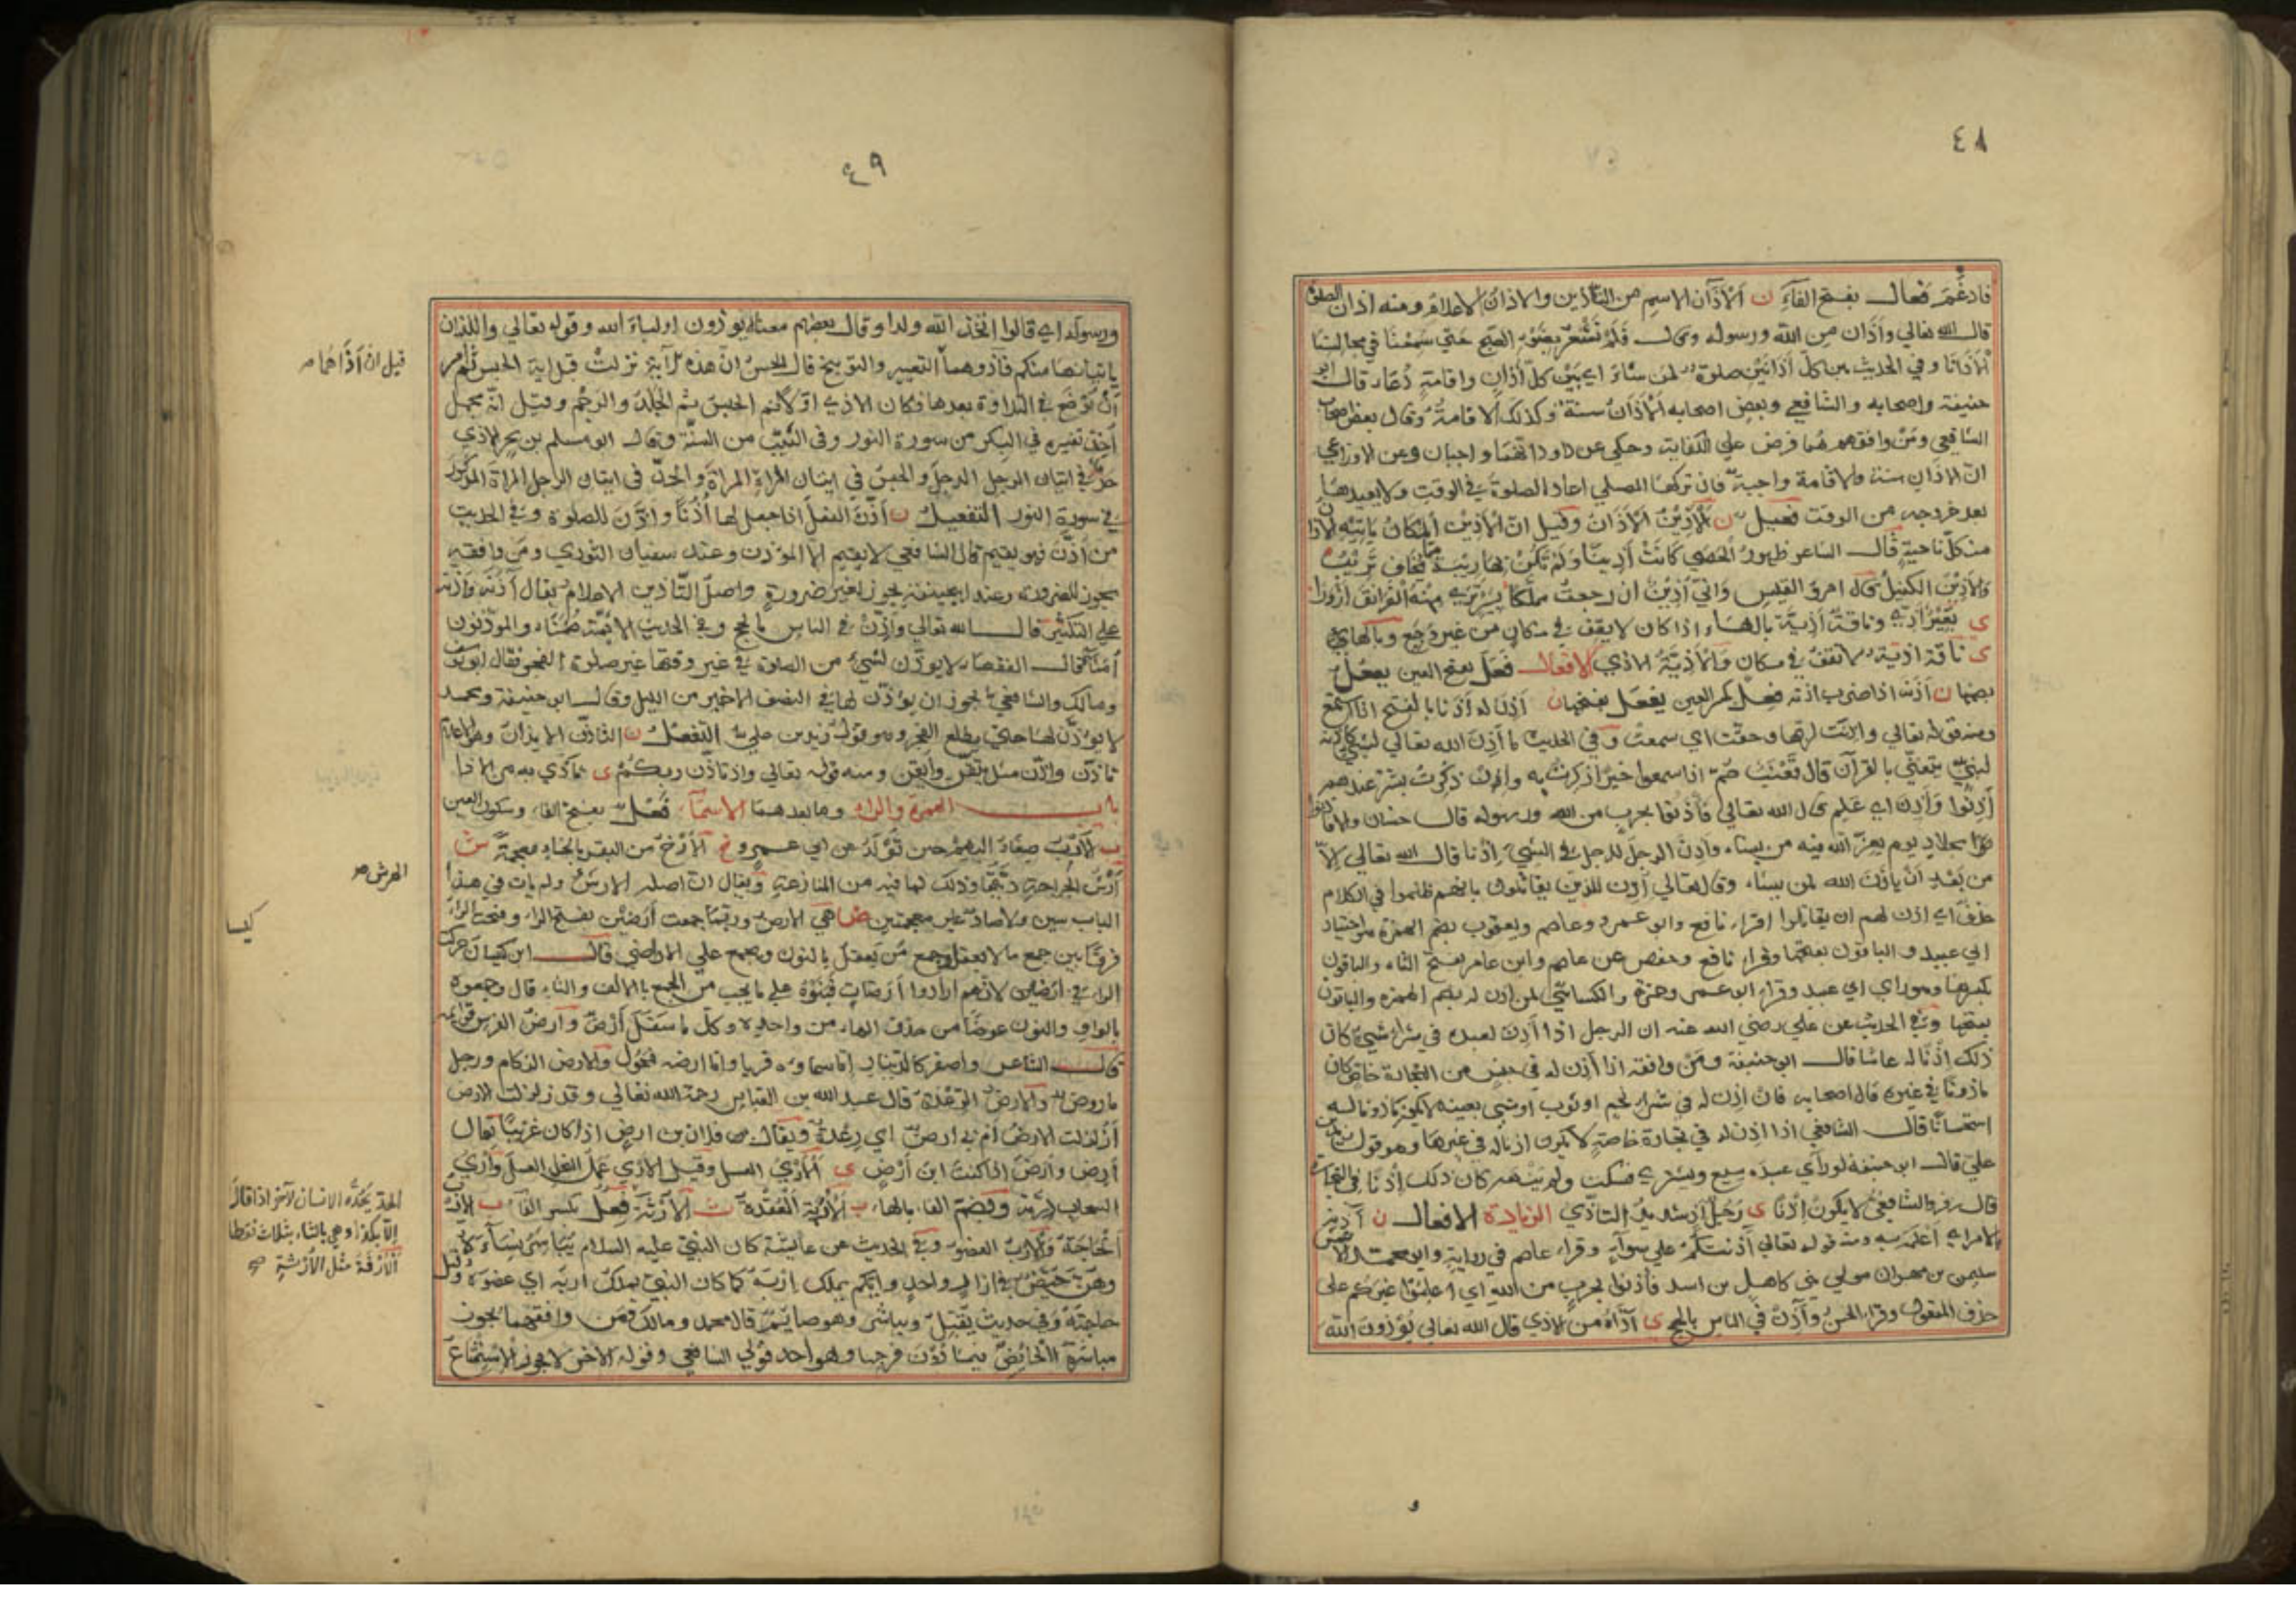 ٤٨
فادغم فعال بفتح الفاء ن الاذان الاسم من التاذين والاذان الاعلام ومنه اذان الصلوة
قال الله تعالى وأذان من الله ورسوله فلم نشعر بضوء الصبح حتى سمعنا في مجالسنا
الاذانا وفي الحديث بين كل أذانين صلوة لمن شاء اي بين كل أذان واقامة دعاء قال ابو
حنيفة واصحابه والشافعي وبعض اصحابه الأذان سنة وكذلك الاقامة وقال بعض اصحاب
الشافعي ومن وافقهم هما فرض على الكفاية وحكي عن داود انهما واجبان وعن الاوزاعي
ان الاذان سنة والاقامة واجبة فان تركها المصلي اعاد الصلوة في الوقت ولا يعيدها
بعد خروجه من الوقت فعيل ن الأذين الأذان وقيل ان الأذين المكان يأتيه الاذان
من كل ناحية قال الشاعر طهور الحصى كانت أذينا ولم تكن بها ريبة مما يخاف تريب
والأذين الكفيل قال امرؤ القيس واني أذين ان رجعت مملكا بسير ترى منه الفرانق أزورا
ى بعير أذي وناقة أذية بالهاء اذا كان لا يقف في مكان من غير وجع وبالهاء
ى ناقة اذية لا تقف في مكان والأذية الاذي الافعال فعل بفتح العين يفعل
بضمها ن أذنه اذا ضرب اذنه فعل بكسر العين يفعل بفتحها ن أذن له أذنا بالفتح اذا استمع
ومنه قوله تعالى واذنت لربها وحقت اي سمعت وفي الحديث ما أذن الله تعالى لشيء كاذنه
لنبي يتغنى بالقرآن قال قعنب صم اذا سمعوا خيرا ذكرت به وإن ذكرت بشر عندهم
أذنوا وأذن اي علم قال الله تعالى فأذنوا بحرب من الله ورسوله قال حسان
لجلاد يوم يعز الله فيه من يشاء وأذن الرجل للرجل في الشيء إذنا قال الله تعالى إلا
من بعد أن يأذن الله لمن يشاء وقال تعالى أذن للذين يقاتلون بانهم ظلموا في الكلام
حذف اي اذن لهم ان يقاتلوا اقرأ نافع وابو عمرو وعاصم ويعقوب بضم الهمزة واختيار
ابي عبيد والباقون بفتحها وقرأ نافع وحفص عن عاصم وابن عامر بفتح التاء والباقون
بكسرها وهو رأي ابي عبيد وقرأ ابو عمرو وحمزة والكسائي لمن اذن له بضم الهمزة والباقون
بفتحها وفي الحديث عن علي رضي الله عنه ان الرجل اذا أذن لعبده في شراء شيء كان
ذلك إذنا له عاما قال ابو حنيفة ومن وافقه اذا أذن له في جنس من التجارة خاص كان
ماذونا في غيره قال اصحابه فان اذن له في شراء لحم او ثوب او شيء بعينه لم يكن ماذونا له
استحسانا قال الشافعي اذا اذن له في تجارة خاصة لا يكون اذنا له في غيرها وهو قول
علي قال ابو حنيفة لو رأى عبده يبيع ويشتري فسكت ولم ينهه كان ذلك إذنا في التجارة
قال زفر والشافعي لا يكون إذنا ى رجل أذ شديد التأذي الزيادة الافعال ن آذنه
بالامر اي اعلمه به ومنه قوله تعالى آذنتكم على سواء وقرأ عاصم في رواية وابو محمد الاعمش
سليمن بن مهران مولى بني كاهل بن اسد فآذنوا بحرب من الله اي اعلموا غيركم على
حذف المفعول وقرأ الحسن وآذن في الناس بالحج ى آذاه من الاذي قال الله تعالى يؤذون الله
٤٩
ورسوله اي قالوا اتخذ الله ولدا وقال بعضهم معناه يؤذون اولياء الله وقوله تعالى واللذان
يأتيانها منكم فآذوهما التعيير والتوبيخ قال الحسن ان هذه الآية نزلت قبل آية الحبس ثم امر
أن توضع في التلاوة بعدها فكان الاذي اولا ثم الحبس ثم الجلد والرجم وقيل انه مجمل
أخذ تفسيره في البكر من سورة النور وفي الثيب من السنة وقال ابو مسلم بن بحر الاذي
في اتيان الرجل الرجل والحبس في اتيان المرأة المرأة والحد في اتيان الرجل المرأة المذكور
في سورة النور التفعيل ن أذن النعل اذا جعل لها أذنا واذن للصلوة وفي الحديث
من أذن فهو يقيم قال الشافعي لا يقيم الا المؤذن وعند سفيان الثوري ومن وافقه
يجوز للضرورة وعند ابي حنيفة يجوز لغير ضرورة واصل التاذين الاعلام يقال آذنه وأذنه
على التكثير قال الله تعالى وأذن في الناس بالحج وفي الحديث الائمة ضمناء والمؤذنون
أمناء قال الفقهاء لا يؤذن لشيء من الصلوة في غير وقتها غير صلوة الفجر فقال ابو يوسف
ومالك والشافعي يجوز ان يؤذن لها في النصف الاخير من الليل وقال ابو حنيفة ومحمد
لا يؤذن لها حتى يطلع الفجر وهو قول زيد بن علي التفعل ن التأذن الايذان وهو الاعلام
تأذن واذن مثل تيقن وأيقن ومنه قوله تعالى واذ تأذن ربكم ى تأذى به من الاذا
باب الهمزة والراء وما بعدهما الاسماء فعل بفتح الفاء وسكون العين
ب الأرب صغار البهم حين تولد عن ابي عمرو خ الأرخ من البقر بالخاء معجمة ش
أرش الجراحة ديتها وذلك لما فيه من المنازعة ويقال ان اصله الارش ولم يات في هذا
الباب سين ولا صاد غير معجمتين ض هي الارض وربما جمعت أرضين بفتح الراء وفتحت الراء
فرقا بين جمع ما لا يعقل وجمع من يعقل بالنون ويجمع على الاراضي قال ابن كيسان حركت
الراء في ارضين لانهم ارادوا أرضات فبنوه على ما يجب من الجمع بالالف والتاء قال وجمعوه
بالواو والنون عوضا من حذف الهاء من واحده وكل ما سفل أرض وأرض الفرس قوائمه
قال الشاعر واصفر كالدينار اما سماؤه فريا واما ارضه فمحول والارض الزكام ورجل
ماروض والارض الرعدة قال عبد الله بن العباس رحمة الله تعالى وقد زلزلت الارض
أزلزلت الارض أم بي ارض اي رعدة ويقال من فلان بن ارض اذا كان غريبا قال
أرض وأرض اذا كنت ابن أرض ى الأري العسل وقيل الأري عمل النحل العسل وأري
السحاب درته وبضم الفاء بالهاء ب الأربة العقدة ث الأرثة فعل بكسر الفاء ب الارب
الحاجة والارب العضو وفي الحديث عن عائشة كان النبي عليه السلام يباشر نساءه
وهن حيض في ازار واحد وايكم يملك اربه كما كان النبي يملك اربه اي عضوه وقيل
حاجته وفي حديث يقبل ويباشر وهو صائم قال محمد ومالك ومن وافقهما يجوز
مباشرة الحائض فيما دون فرجها وهو احد قولي الشافعي وقوله الآخر لا يجوز الاستمتاع
قيل ان آذاهما
الهرش صح
كيسا
الحد يحده الانسان لآخر اذا قال
وهي بالثاء بثلاث نقط
الارفة مثل الأرثة صح